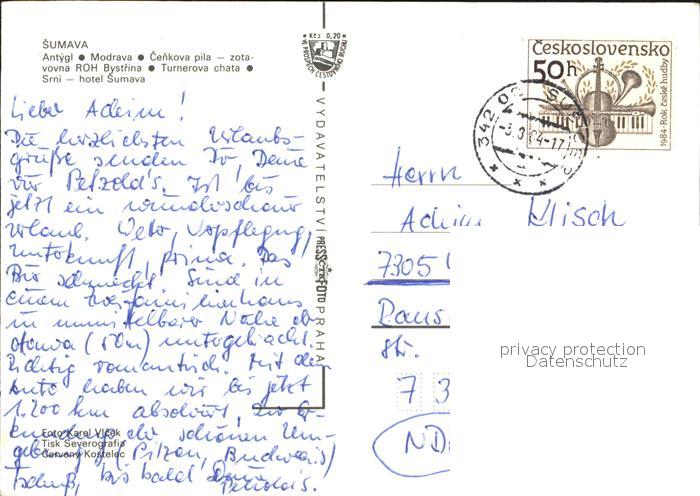 ŠUMAVA
Antýgl ● Modrava ● Čeňkova pila — zota-
vovna ROH Bystřina ● Turnerova chata ●
Srní — hotel Šumava
Kčs 0,20
VE PROSPĚCH CESTOVNÍHO RUCHU
VYDAVATELSTVÍ PRESSFOTO PRAHA
Československo
50h
1984 · Rok české hudby
342 0
Lieber Achim!
Die herzlichsten Urlaubs-
grüße senden Dir, Deine
vier Petzold's. Ist bis
jetzt ein wunderschöner
Urlaub. Wetter, Verpflegung,
Unterkunft, prima. Das
Bier schmeckt. Sind in
einem Zweifamilienhaus
in unmittelbarer Nähe der
Otawa (50m) untergebracht.
Richtig romantisch. Mit dem
Auto haben wir bis jetzt
1.200 km absolviert, zur Er-
kundung der schönen Um-
gebung, (Pilzen, Budweis)
Tschüß, bis bald Deine
Petzold's.
Foto Karel Vlček
Tisk Severografia
Červený Kostelec
Herrn
Achim Klisch
7305
Str.
7 3
privacy protection
Datenschutz